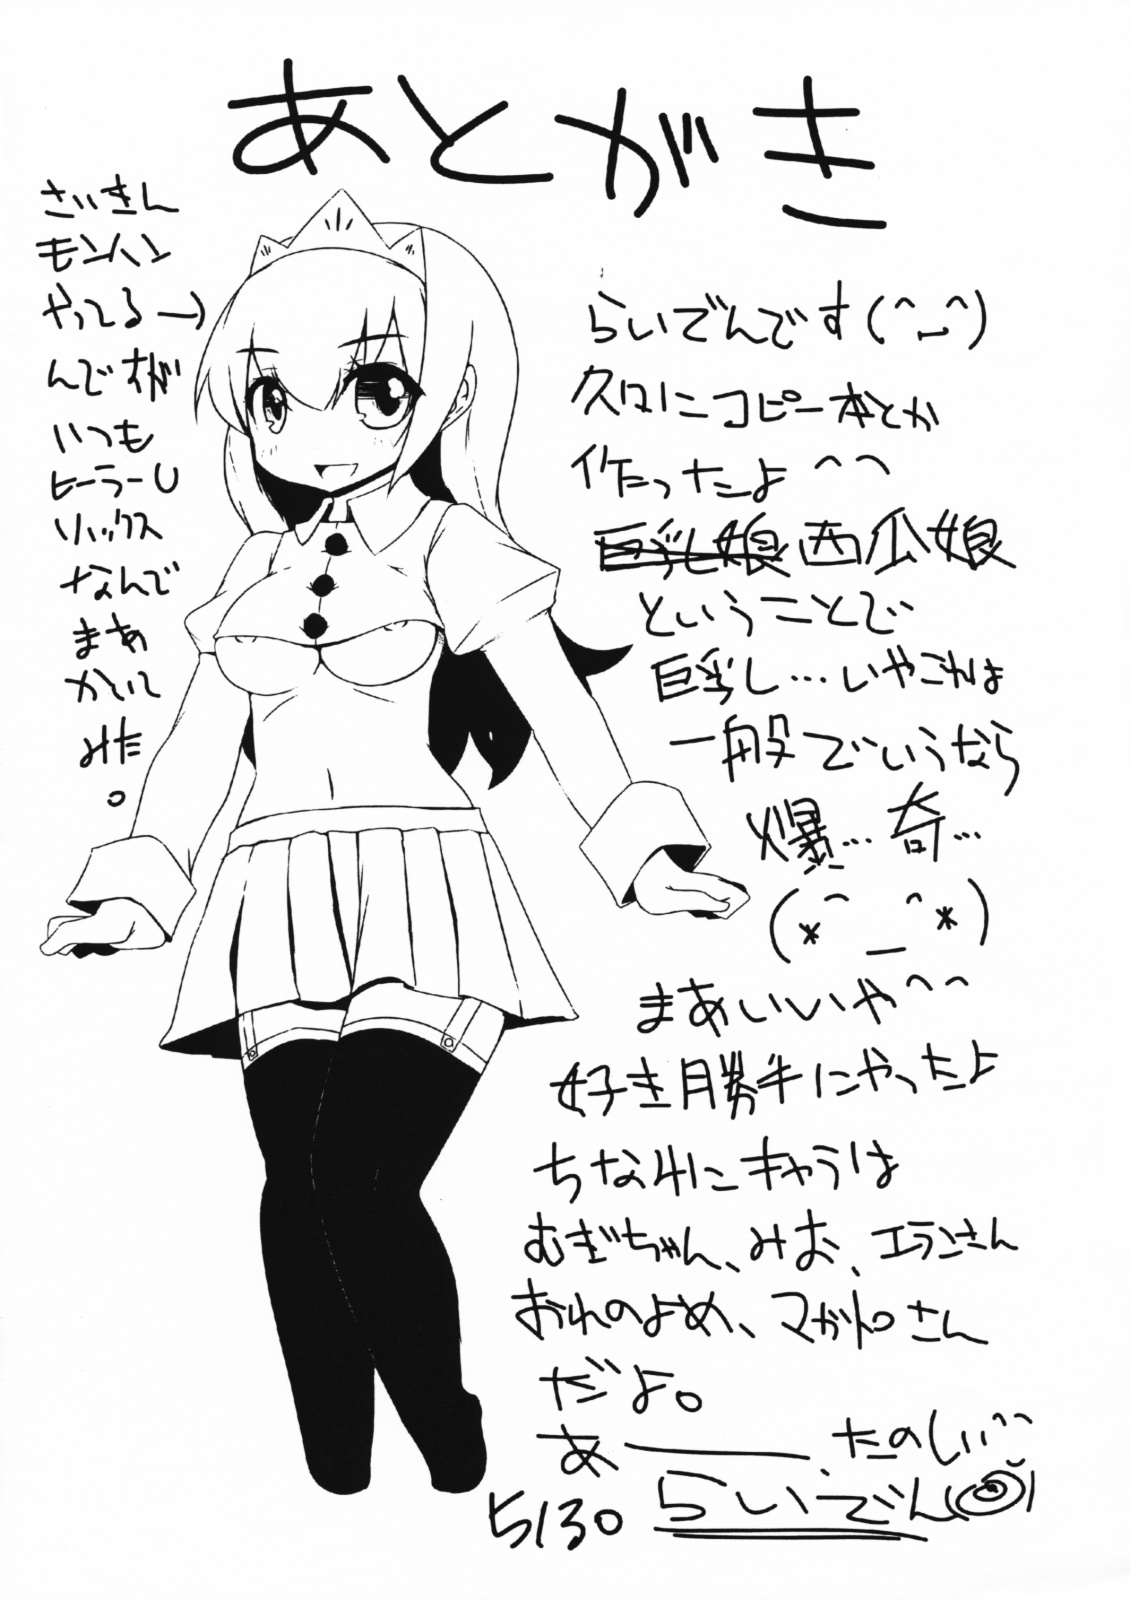 あとがき
さいきん
モンハン
やってる→
んですが
いつも
ヒーラーU
ソックス
なんで
まあ
かいて
みた
。
らいでんです(^_^)
久々にコピー本とか
作ったよ^^
巨乳娘西瓜娘
ということで
巨乳し…いやこれは
一般でいうなら
爆…奇…
(*^_^*)
まあいいや^^
好き勝手にやったよ
ちなみにキャラは
むぎちゃん、みお、エランさん
おれのよめ、マガトロさん
だよ。
あ――、たのしい^^
5/30 らいでん